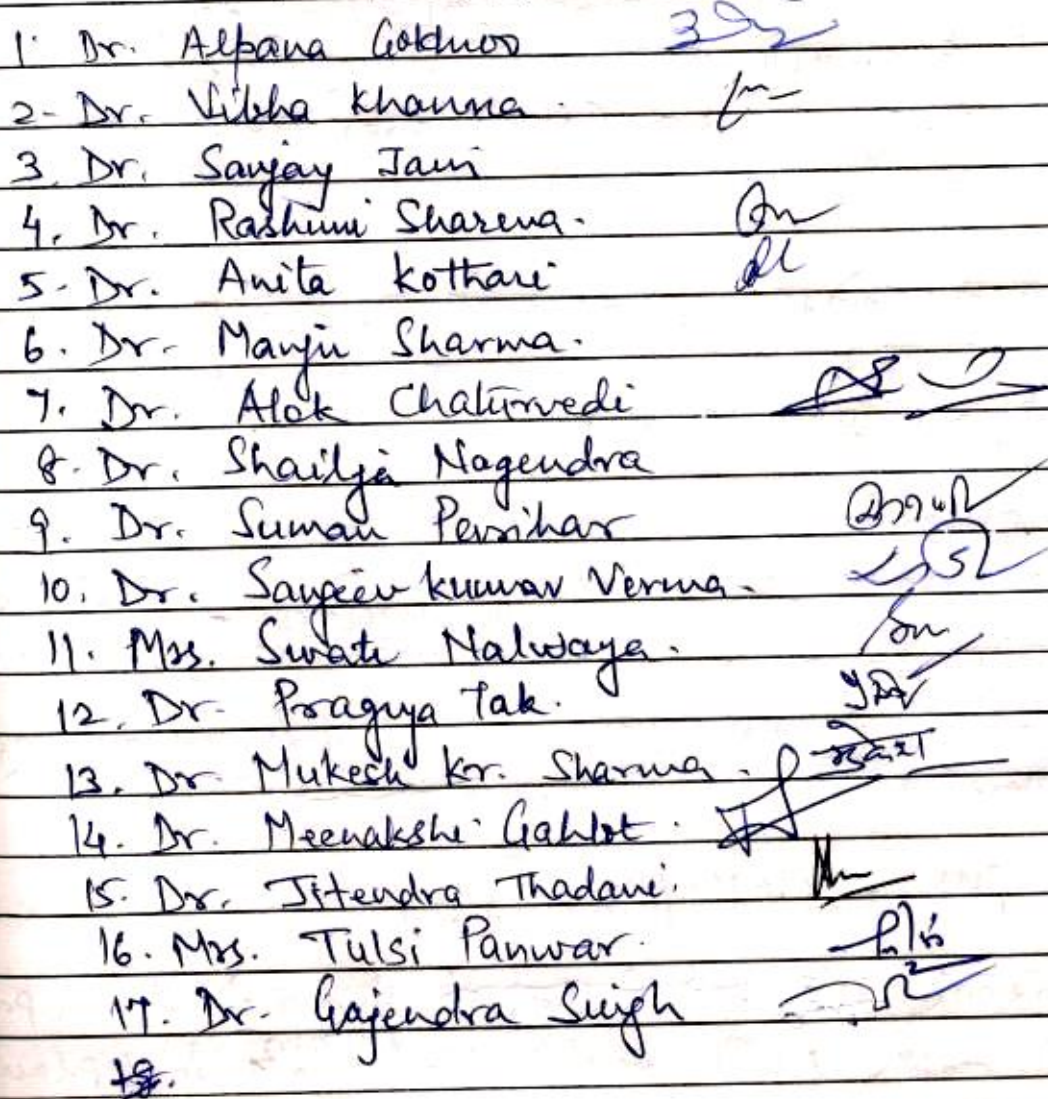 1. Dr. Alpana
2- Dr. Vibha Khanna.
3. Dr. Sanjay Jain
4. Dr. Rashmi Sharma.
5. Dr. Anita Kothari
6. Dr. Manju Sharma.
7. Dr. Alok Chaturvedi
8. Dr. Shailja Nagendra
9. Dr. Suman Parihar
10. Dr. Sanjeev kumar Verma.
11. Mrs. Swati Nalwaya.
12. Dr. Pragya Tak.
13. Dr. Mukesh Kr. Sharma.
14. Dr. Meenakshi Gahlot.
15. Dr. Jitendra Thadani.
16. Mrs. Tulsi Panwar.
17. Dr. Gajendra Singh